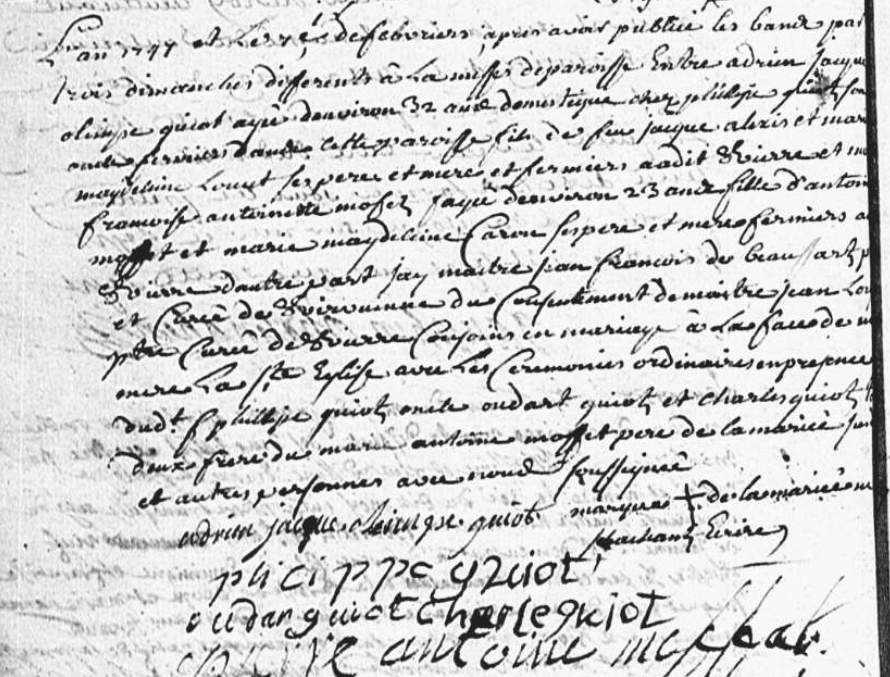 L'an 1747 et le 7e de febvriers, apres avoir publié les bancs par
trois dimanches differents â La messe de paroisse Entre adrien Jacque
olimpe quiot agé d'environ 32 ans domestique chez philippe quiot son
oncle fermier dans cette paroisse fils de feu jacque alexis et mar
magdelaine Louet ses pere et mere et fermiers audit et
francoise antoinette mofet agée d'environ 23 ans fille d'antoin
moffet et marie magdeleine Caron ses pere et mere fermiers a
d'autre part jay maitre jean francois de beaussart p
et Curé de du Consentement de maistre jean Lou
ptre Curé de Conjoins en mariage â La face de n
mere La Ste Eglise avec Les Ceremonies ordinaires en presence
dudt philippe quiot oncle oudart quiot et charles quiot
deux frere du marié antoine moffet pere de la mariée
et autres personnes avec nous soussignée
adrien jacque olimpe quiot marque + de la mariée ne
sachant Ecrire
philippe quiot
oudar quiot Charle quiot
antoine moffet